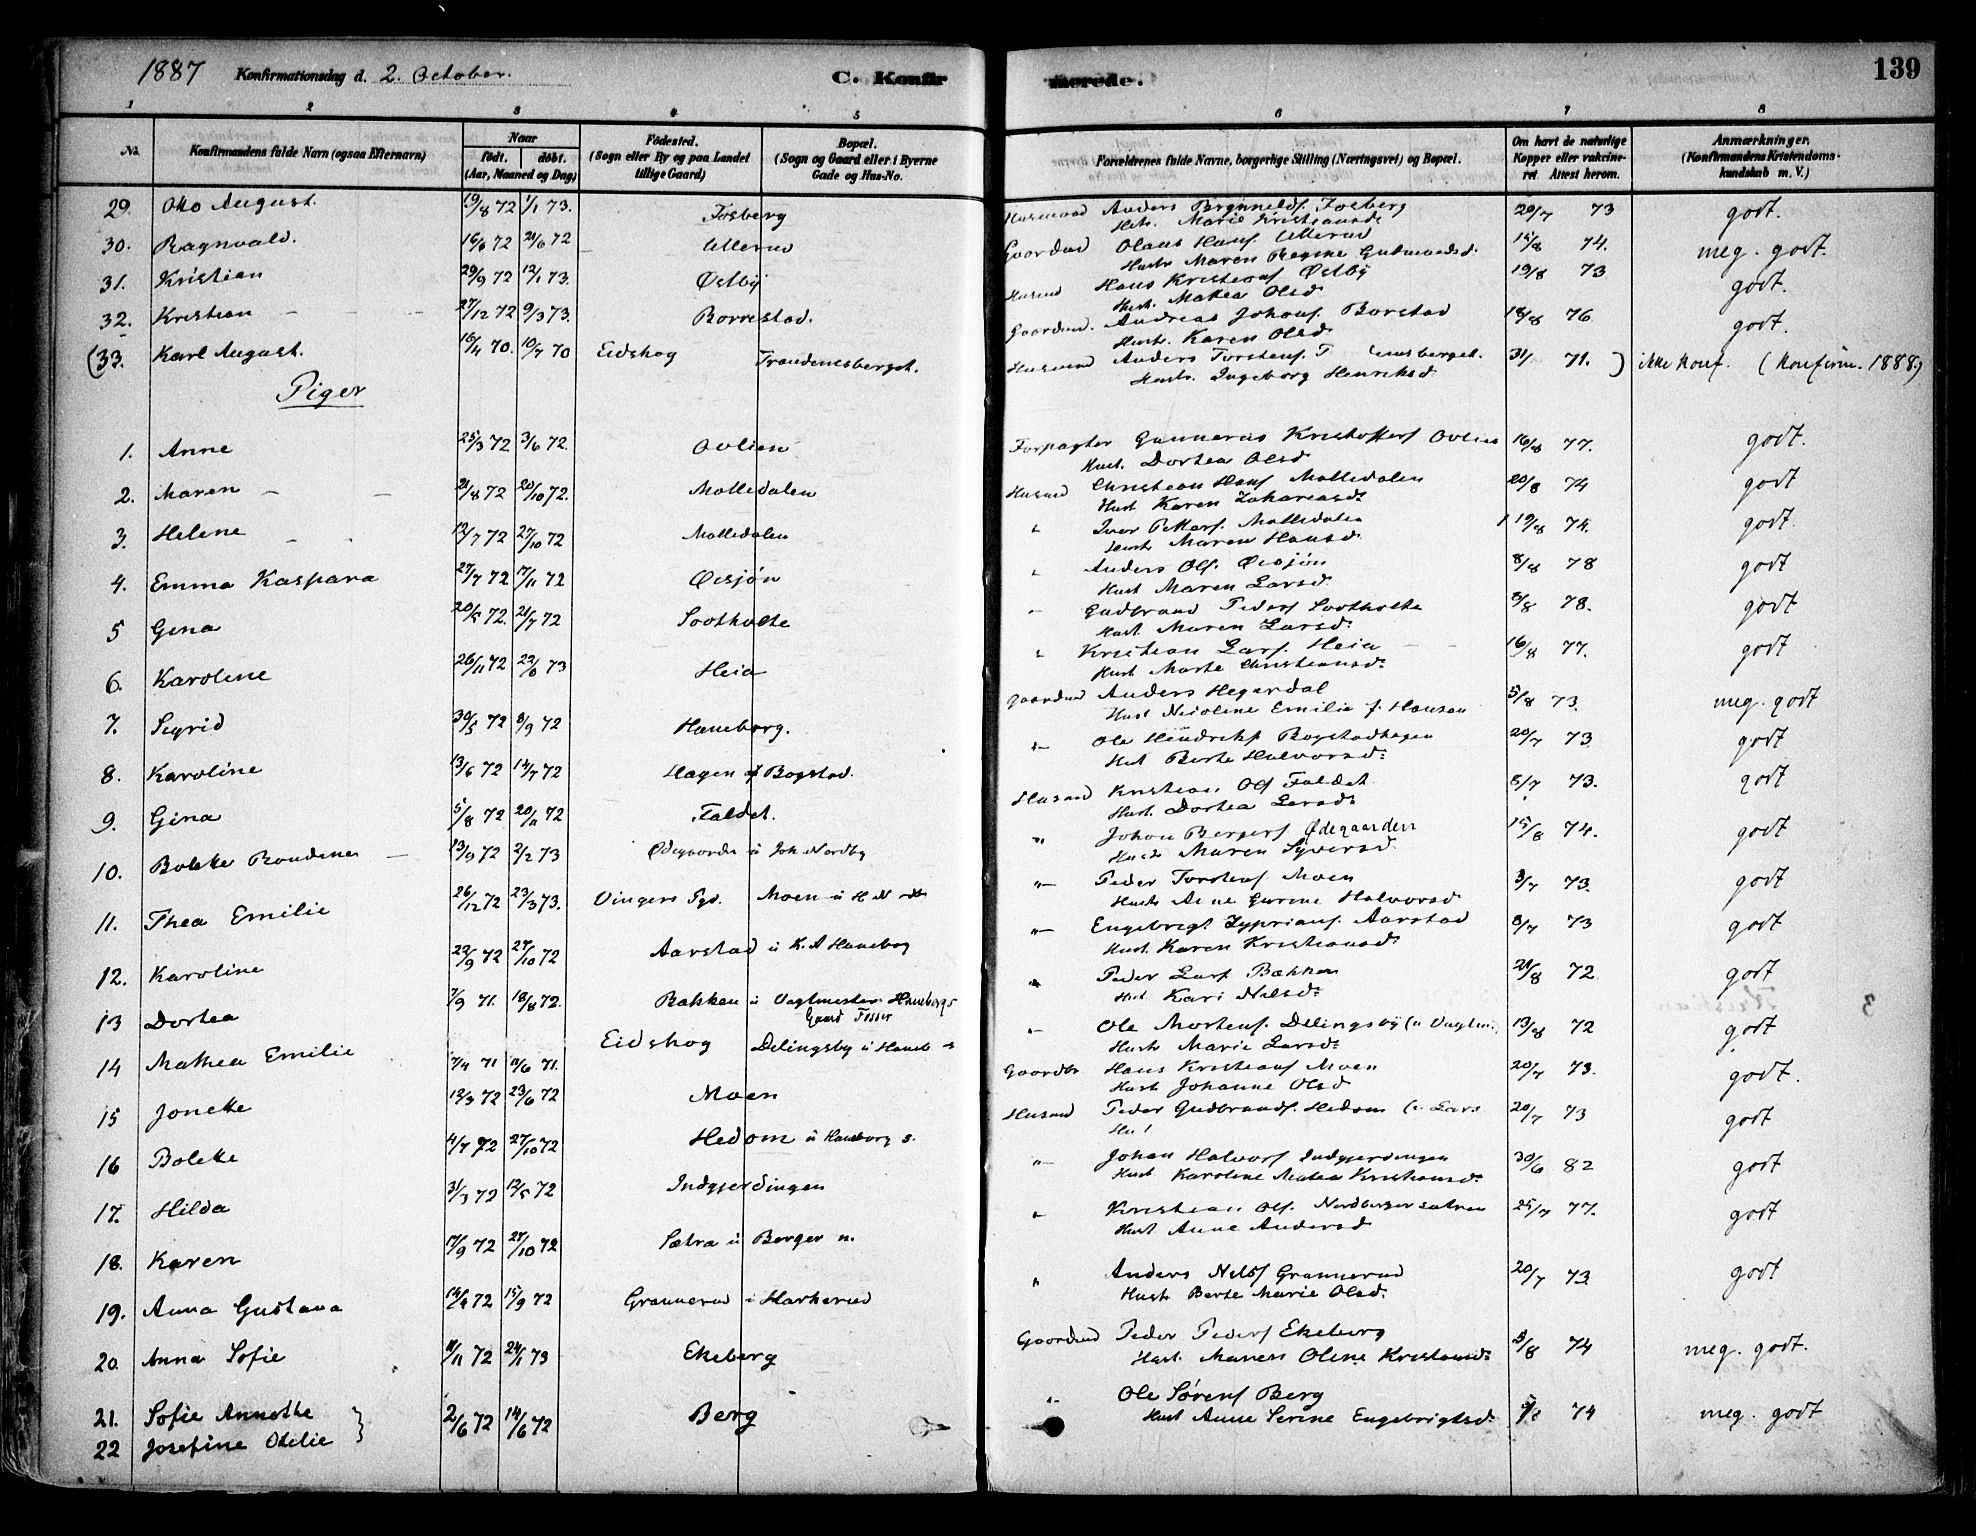 1887 Konfirmationsdag d. 2. October. C. Konfirmerede. 139
1 2 3 4 5 6 7 8
No. Konfirmandens fulde Navn (ogsaa Efternavn) Naar født. døbt. (Aar, Maaned og Dag) Fødested. (Sogn eller By og paa Landet tillige Gaard) Bopæl. (Sogn og Gaard eller i Byerne Gade og Hus-No. Forældrenes fulde Navne, borgerlige Stilling (Næringsvei) og Bopæl. Om havt de naturlige Kopper eller vakcineret. Attest herom. Anmærkninger. (Konfirmandens Kristendomskundskab m. V.)
29. Otto August. 19/8 72 1/1 73. Fosberg Husmand Anders Brynnelds. Fosberg 20/7 73 godt.
Hstr. Marie Kristiansd.
30. Ragnvald. 16/6 72 21/6 72 Ullerud Gaardmd Olaus Hans. Ullerud 15/8 74. meg. godt.
Hustr Maren
31. Kristian 29/9 72 12/1 73. Østby Husmd Hans Kristians Østby 19/8 73 godt.
Hust. Mathea Olsd
32. Kristian 27/12 72 9/3 73. Borrestad. Gaardmd. Andreas Johans. Borstad 18/8 76 godt.
Hust. Karen Olsd
(33. Karl August. 16/4 70. 10/7 70 Eidskog Trandemsberget. Husmand Anders Torstens. 31/ 71. ) ikke konf. (Konfirm. 1888.)
Hustr. Ingeborg Henriksd
Piger
1. Anne 25/3 72 3/6 72. Ovlien Forpagter Gunnerus Kristoffers Ovlien 16/8 77. godt.
Hust. Dortea Olsd
2. Maren 21/8 72 20/10 72. Mølledalen Husmd Christian Hans Mølledalen 20/8 74 godt
Hust Karen Zakariasd:
3. Helene 12/7 72 27/10 72 Mølledalen " Iver Petters. Mølledalen 19/8 74. godt.
Hustr Maren Hansd.
4. Emma Kaspara 27/7 72 17/11 72 Øisjøn " Anders Ols. Øisjøn 8/8 78 godt
Hust Maren Larsd.
5 Gina 20/5 72. 21/7 72 Sootholte " Gudbrand Peders Sootholte 8/8 78. godt
Hust. Maren Larsd:
6. Karoline 26/11 72 22/6 73 Heia " Kristian Lars. Heia 16/8 77. godt
Hust Marte Christiansd:
7. Sigrid 30/5 72 8/9 72 Haneborg. Gaardmd Anders Hegerdal 5/8 73. meg. godt
Hust Nicoline Emilie f. Hansen
8. Karoline 13/6 72 14/7 72 Hagen af Bogstad. "— Ole Hendriks Bogstadhagen 20/7 73 godt
Hst Berte Halvorsd:
9. Gina 5/8 72 20/ 72 Faldet. Husmd Kristian Ols Faldet 8/7 73. godt
Hust. Dortea Larsd:
10. Bolette 13/9 72 2/2 73 Ødegaarden u Joh Nordby " Johan Bergers Ødegaarden 15/8 74. godt
Hust Maren Syversd.
11. Thea Emilie 26/12 72 23/3 73. Vingers Pgd. Moen u "— Peder Torstens Moen 3/7 73. godt
Hustr Anne Gurine Halvorsd.
12. Karoline 22/9 72 27/10 72 Aarstad u K. A Haneborg "— Engebrigt Zyprians. Aarstad 8/7 73 godt
Hust. Karen Kristiansd:
13 Dortea 7/9 71. 18/8 72. Bakken u Vagtmester Haneborgs " Peder Lars Bækken 21/8 72 godt
Gaard Fosser Hust Kari Nilsd:
14 Mathea Emilie 7/4 71 11/6 71. Eidskog Delingsby u Haneb s "— Ole Mortens. Delingsby (u Vagtm. 13/8 72 godt
Hustr Marie Larsd:
15 Jonette 12/3 72 23/6 72 Moen Gaardbr Hans Kristians Moen 20/7 73. godt.
Hust Johanne Olsd
16 Bolette 4/7 72 27/10 72 Hedom u Haneborg s. Husmd Peder Gudbrands. Hedom (u Lars 20/7 73 godt
17. Hilda 31/3 72 12/5 72 Indgjerdingen "— Johan Halvors Indgjerdingen 30/6 82 godt
Hust Karoline Matea Kristiansd:
18. Karen 17/9 72 27/10 72 Sætra u Berger n. " Kristian Ols. Nordbergersætren 25/7 77. godt
Hust Anne Andersd
19. Anna Gustava 14/4 72 15/9 72 Grannerud i Harkerud " Anders Nils Grannerud 20/7 73 godt
Hust. Berte Marie Olsd.
20. Anna Sofie 11/11 72 24/1 73 Ekeberg Gaardmd Peder Peders Ekeberg 5/8 74 meg. godt.
Hust. Maren Oline Kristiansd:
21. Sofie Annette } 2/6 72 14/6 72 Berg " Ole Sørens Berg 74 meg. godt
22 Josefine Otelie Hust Anne Serine Engebrigtsd.